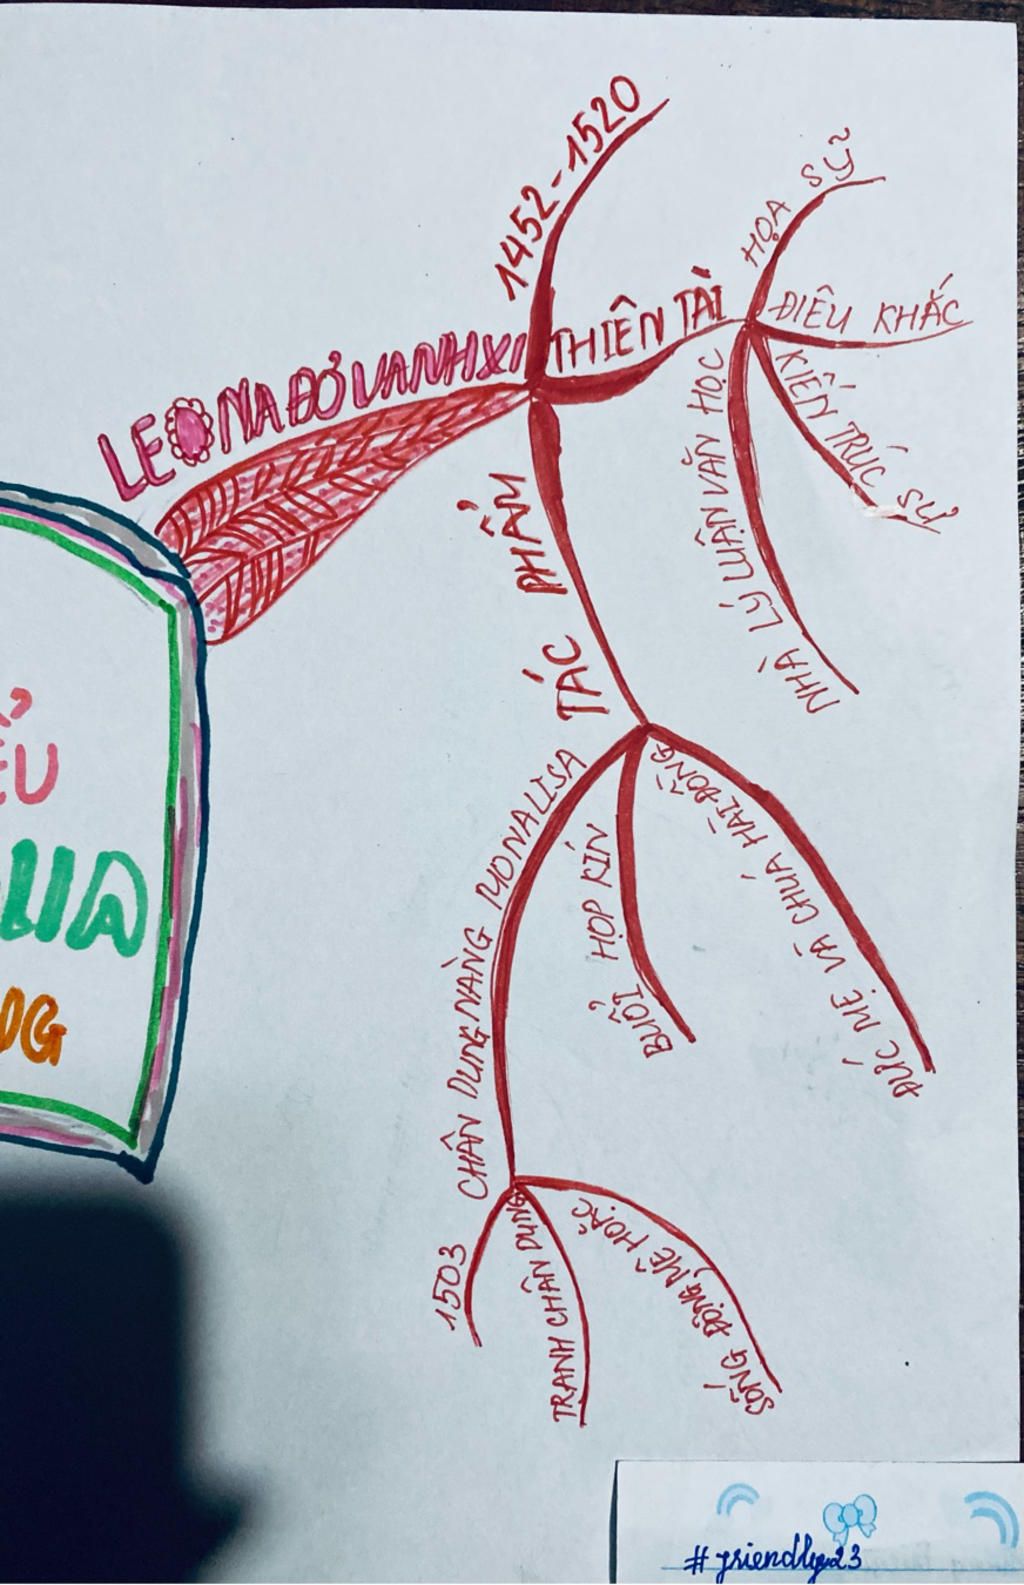 LEONAĐỞVANHXI
1452-1520
THIÊN TÀI
HỌA SỸ
ĐIÊU KHẮC
KIẾN TRÚC SƯ
NHÀ LÝ LUẬN VĂN HỌC
TÁC PHẨM
CHÂN DUNG NÀNG MONALISA
BUỔI HỌP KÍN
ĐỨC MẸ VÀ CHÚA HÀI ĐỒNG
1503
TRANH CHÂN DUNG
SỐNG ĐỘNG, MÊ HOẶC